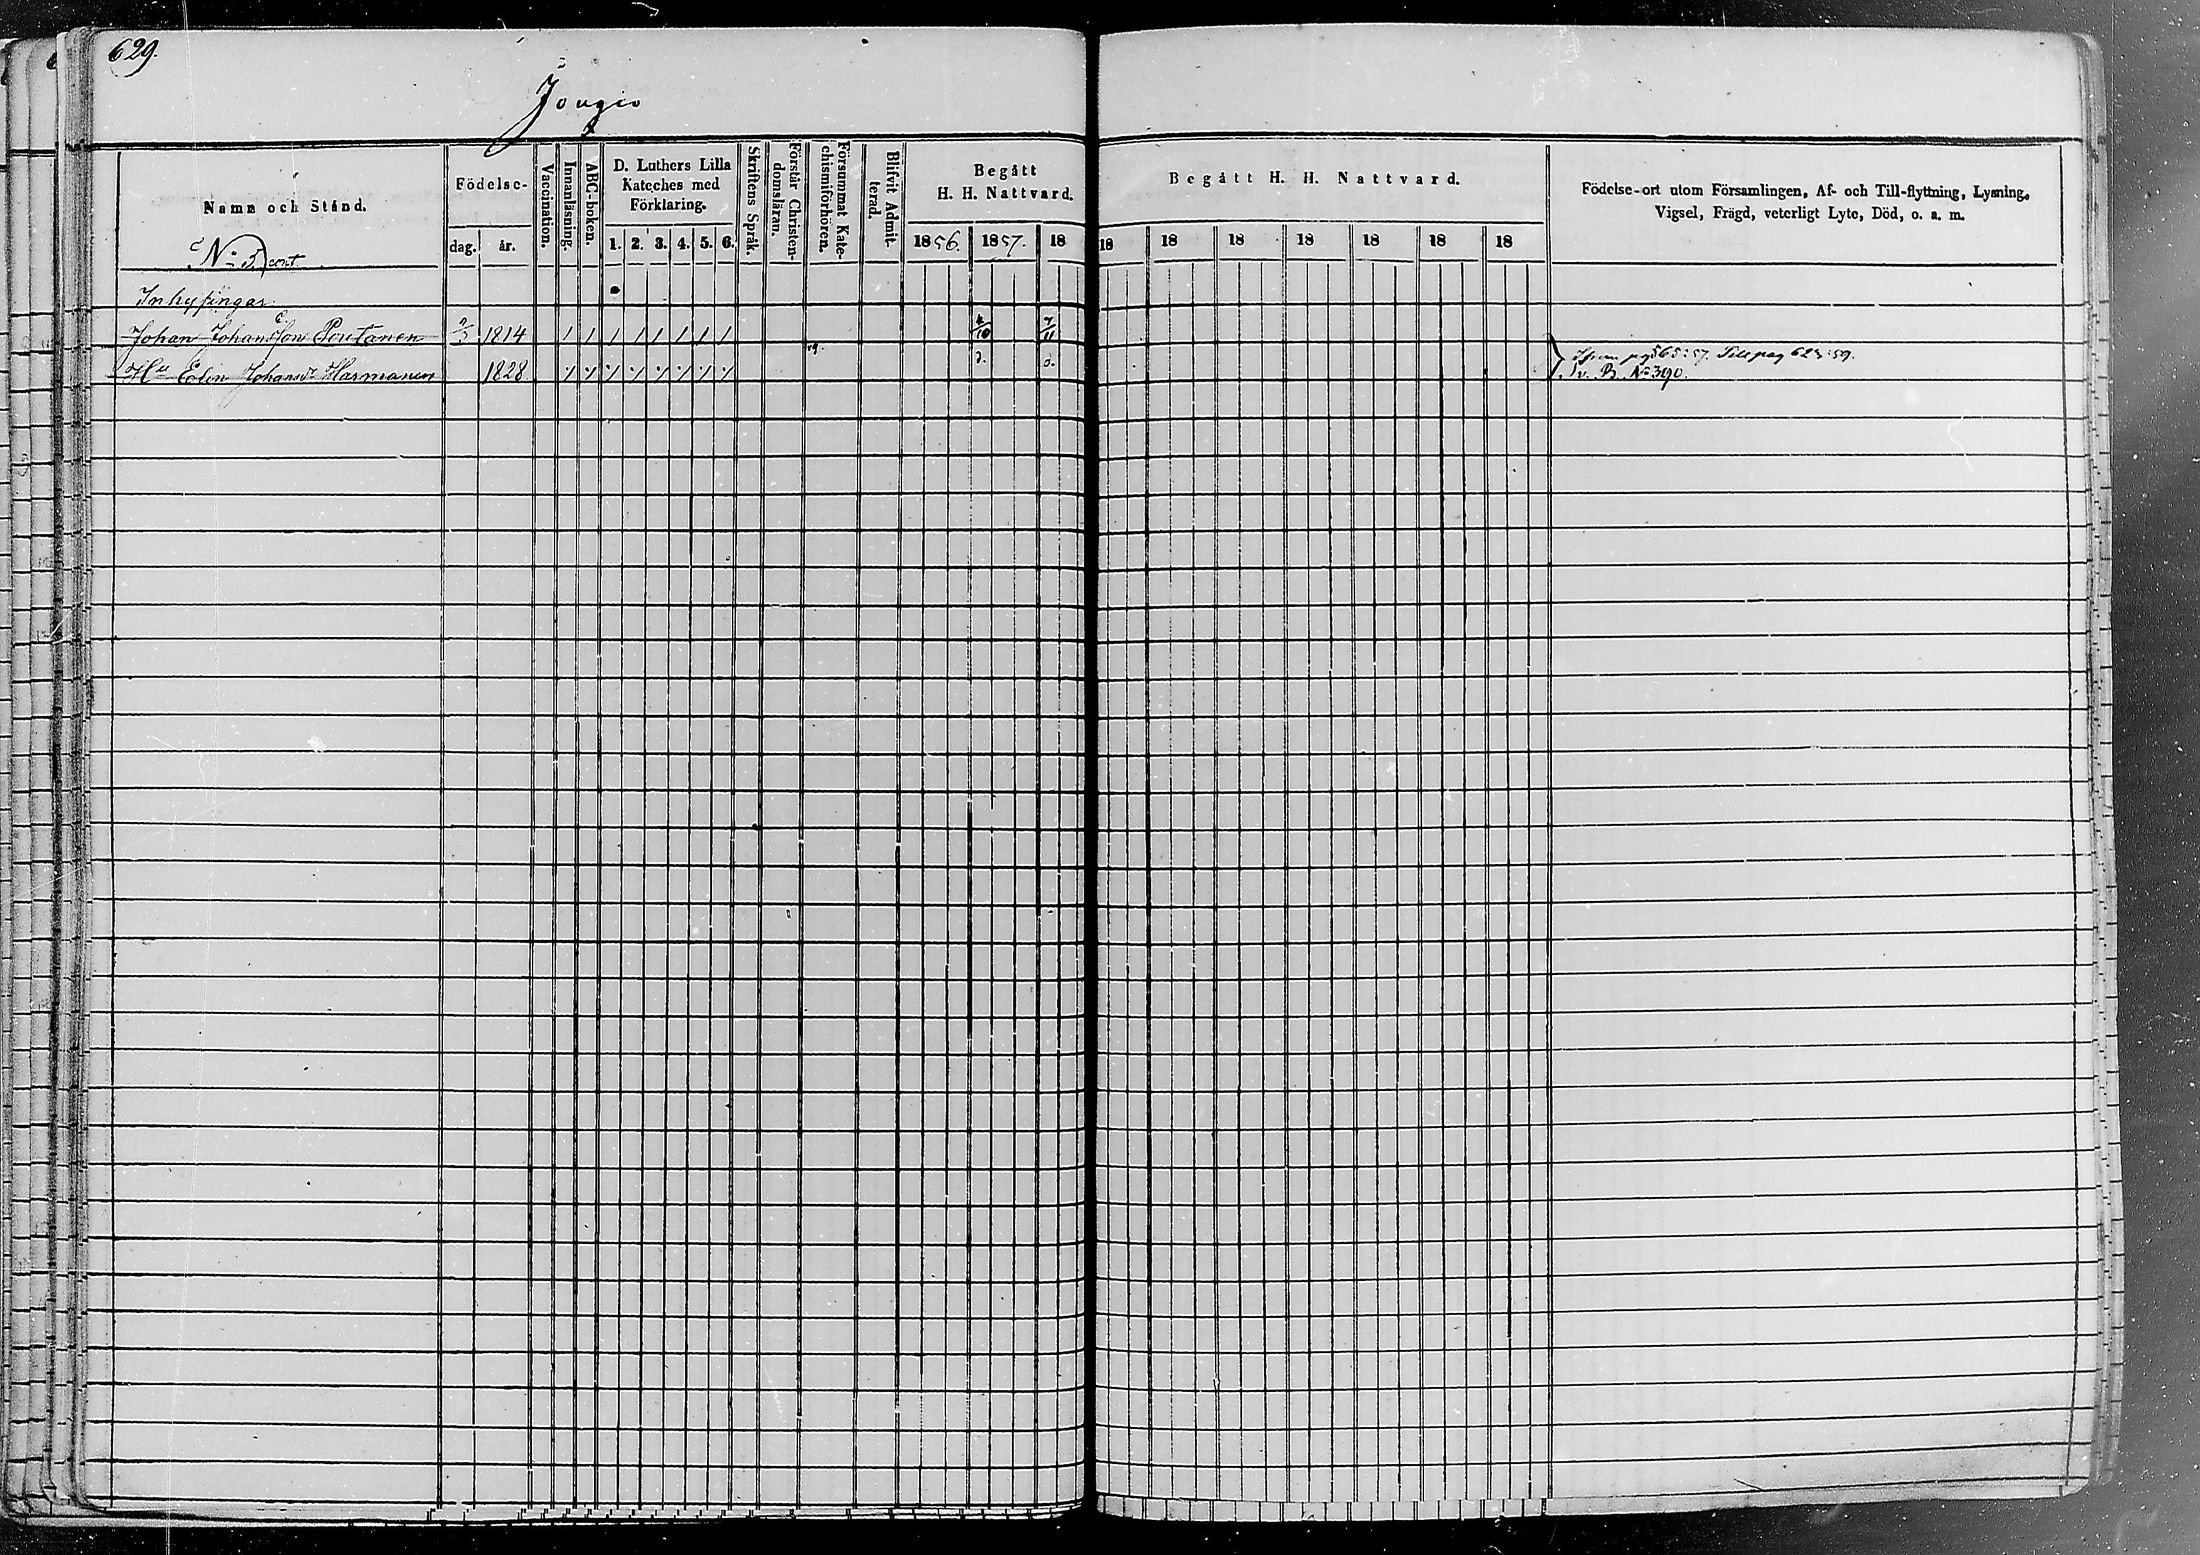 629.
Jougio
Namn och Stånd.
Födelse-
dag. år.
Vaccination.
Innanläsning.
ABC-boken.
D. Luthers Lilla
Kateches med
Förklaring.
1. 2. 3. 4. 5. 6.
Skriftens Språk.
Förstår Christen-
domsläran.
Försummat Kate-
chismiförhören.
Blifvit Admit-
terad.
Begått
H. H. Nattvard.
1856. 1857. 18
Begått H. H. Nattvard.
18 18 18 18 18 18 18
Födelse-ort utom Församlingen, Af- och Till-flyttning, Lysning,
Vigsel, Frägd, veterligt Lyte, Död, o. a. m.
No 5 cont
Inhysingar
Johan Johansson Poutanen 1814
Hu Elin Johansdr Harmanen 1828
pag 565:57. Till pag 623:59.
B. No 390.